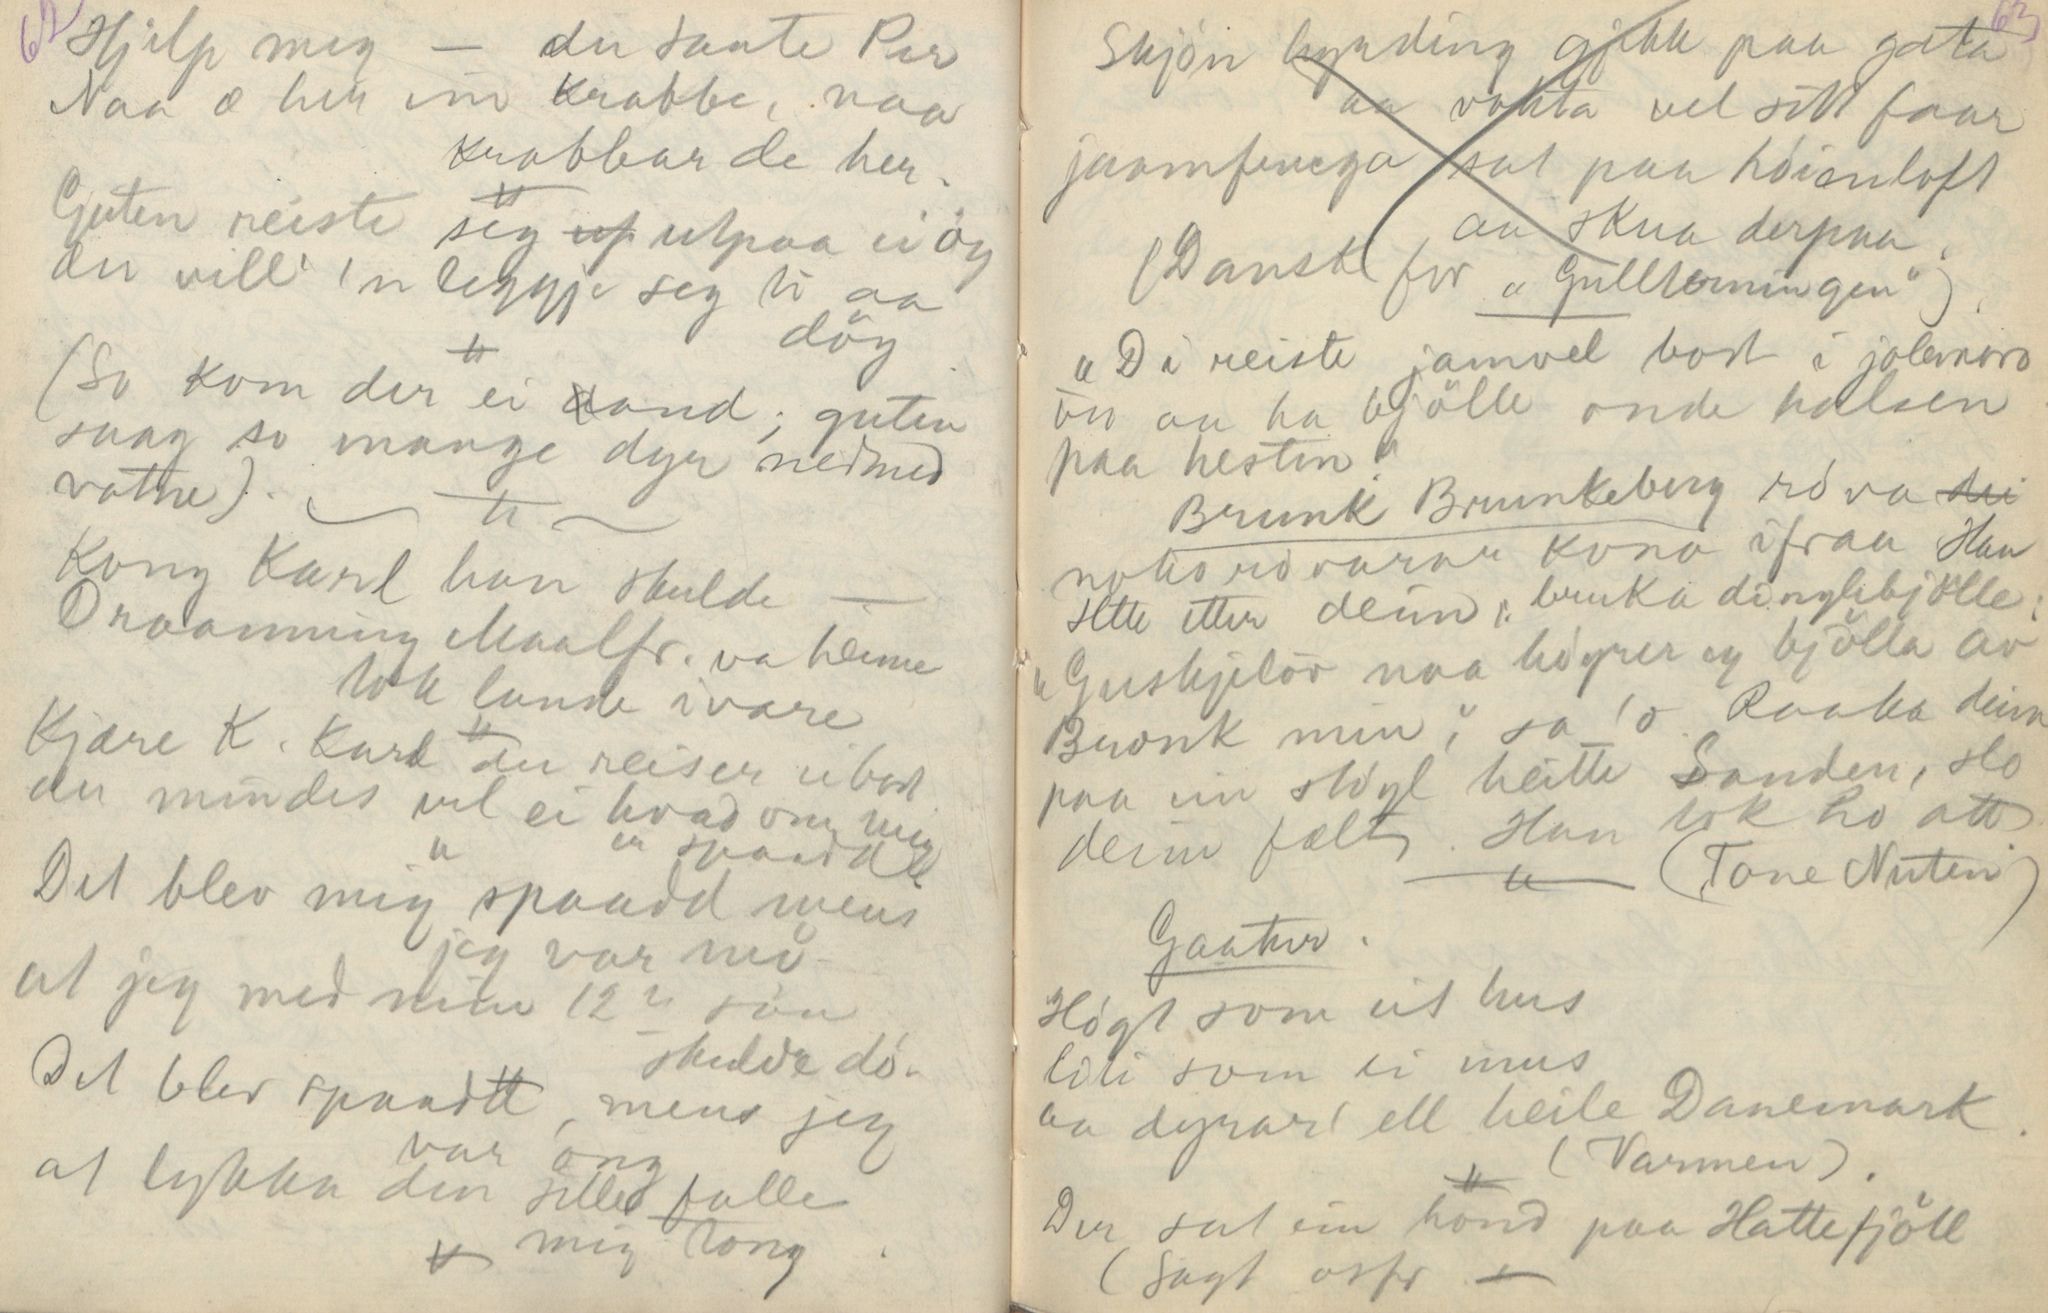 62
Hjelp meg — du sante Per
Naa æ her ein krabbe, naa
krabbar de her.
"
Guten reiste seg up utpaa ei öy
du vill 'n leggje seg ti aa
döy
"
(So kom der ei and; guten
saag so mange dyr nedmed
vatne).
"
Kong Karl han skulde —
Draanning Maalfr. va heime
tok lande ivare
"
Kjære K. Karl du reiser ibort
du mindes vel ei hvad om mig
" er spaadd
Det blev mig spaadd mens
jeg var mö
at jeg med min 12te sön
skulde dö.
Det blev spaadtt, mens jeg
var ong
at lykka den silled falle
mig tong.
"
63
Skjön hynding gjekk paa gata
aa vakta vel sitt faar
jaamfruega sat paa höienloft
aa skua derpaa.
(Dansk for "Gullterningen").
"Di reiste jamvel bort i jolemoro
en aa ha bjölle onde halsen
paa hesten."
Brunk Brunkeberg röva
noko rövarar kona ifraa Han
sette etter deim, bruka dinglebjölle;
"Guskjelov naa höyrer eg bjölla av
Bronk min", sa 'o. Raaka deim
paa ein stögl heitte Sanden, slo
deim fælt. Han tok ho att.
" (Tone Nuten)
Gaatur.
Högt som eit hus
liti som ei mus
aa dyrar' ell heile Danemark.
(Varmen).
"
Der sat ein hönd paa Hattefjöll
(Sagt osfr. —